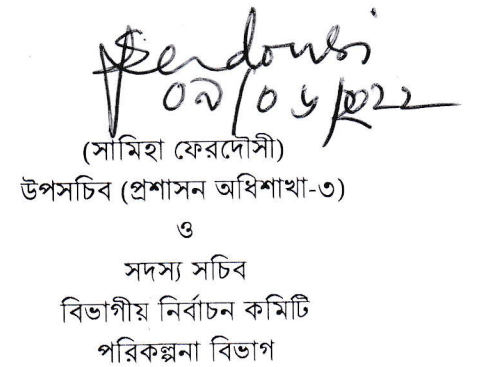 Ferdousi
০৯/০৬/২০২২
(সামিহা ফেরদৌসী)
উপসচিব (প্রশাসন অধিশাখা-৩)
ও
সদস্য সচিব
বিভাগীয় নির্বাচন কমিটি
পরিকল্পনা বিভাগ